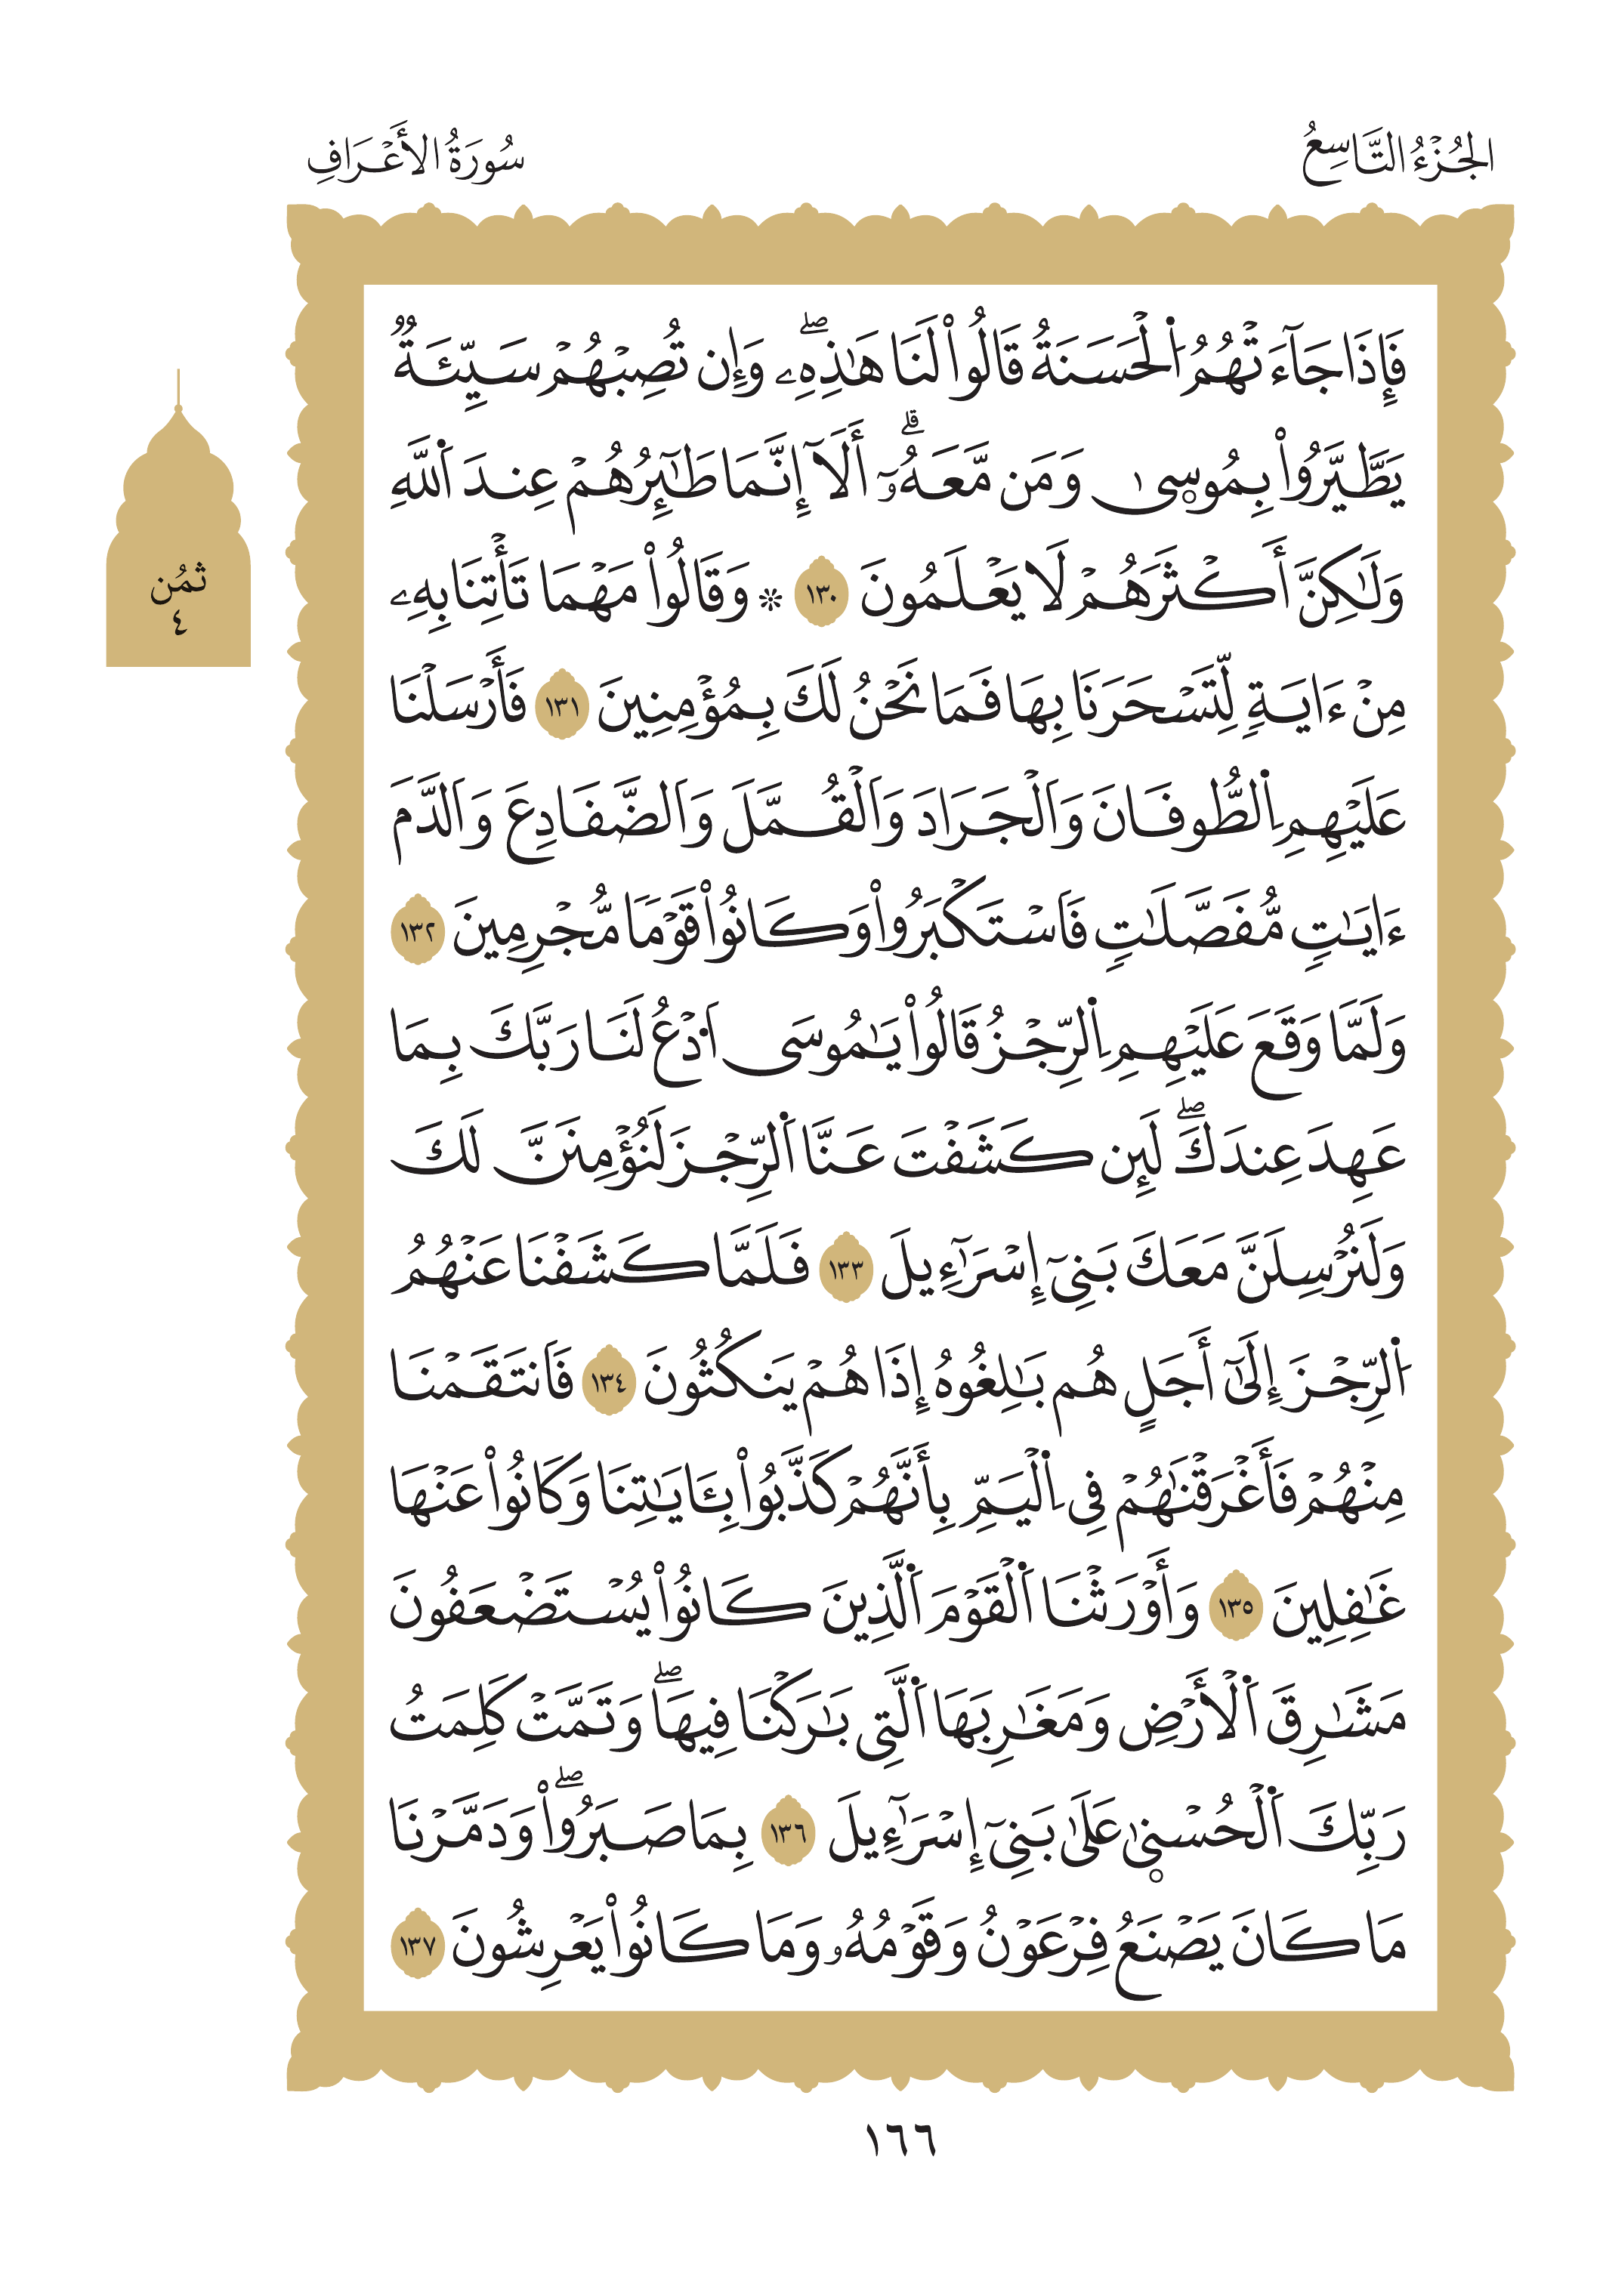 الجُزْءُ التَّاسِعُ
سُورَةُ الأَعْرَافِ
فَإِذَا جَآءَ تْهُمُ اُ۬لْحَسَنَةُ قَالُواْ لَنَا هَٰذِهِۦۖ وَإِن تُصِبْهُمْ سَيِّئَةٞ
يَطَّيَّرُواْ بِمُوسۭىٰ وَمَن مَّعَهُۥٓۗ أَلَآ إِنَّمَا طَٰٓئِرُهُمْ عِندَ اَ۬للَّهِ
وَلَٰكِنَّ أَكْثَرَهُمْ لَا يَعْلَمُونَ ١٣٠ ۞ وَقَالُواْ مَهْمَا تَأْتِنَا بِهِۦ
مِنْ ءَايَةٖ لِّتَسْحَرَنَا بِهَا فَمَا نَحْنُ لَكَ بِمُؤْمِنِينَ ١٣١ فَأَرْسَلْنَا
عَلَيْهِمِ اِ۬لطُّوفَانَ وَاَلْجَرَادَ وَاَلْقُمَّلَ وَاَلضَّفَادِعَ وَاَلدَّمَ
ءَايَٰتٖ مُّفَصَّلَٰتٖ فَاَسْتَكْبَرُواْ وَكَانُواْ قَوْمٗا مُّجْرِمِينَ ١٣٢
وَلَمَّا وَقَعَ عَلَيْهِمِ اِ۬لرِّجْزُ قَالُواْ يَٰمُوسَى اَ۟دْعُ لَنَا رَبَّكَ بِمَا
عَهِدَ عِندَكَۖ لَئِن كَشَفْتَ عَنَّا اَ۬لرِّجْزَ لَنُؤْمِنَنَّ لَكَ
وَلَنُرْسِلَنَّ مَعَكَ بَنِيٓ إِسْرَٰٓءِيلَ ١٣٣ فَلَمَّا كَشَفْنَا عَنْهُمُ
اُ۬لرِّجْزَ إِلَىٰٓ أَجَلٍ هُم بَٰلِغُوهُ إِذَا هُمْ يَنكُثُونَ ١٣٤ فَانتَقَمْنَا
مِنْهُمْ فَأَغْرَقْنَٰهُمْ فِي اِ۬لْيَمِّ بِأَنَّهُمْ كَذَّبُواْ بِـَٔايَٰتِنَا وَكَانُواْ عَنْهَا
غَٰفِلِينَ ١٣٥ وَأَوْرَثْنَا اَ۬لْقَوْمَ اَ۬لَّذِينَ كَانُواْ يُسْتَضْعَفُونَ
مَشَٰرِقَ اَ۬لْأَرْضِ وَمَغَٰرِبَهَا اَ۬لَّتِي بَٰرَكْنَا فِيهَاۖ وَتَمَّتْ كَلِمَتُ
رَبِّكَ اَ۬لْحُسْنۭىٰ عَلَىٰ بَنِيٓ إِسْرَٰٓءِيلَ ١٣٦ بِمَا صَبَرُواْۖ وَدَمَّرْنَا
مَا كَانَ يَصْنَعُ فِرْعَوْنُ وَقَوْمُهُۥ وَمَا كَانُواْ يَعْرِشُونَ ١٣٧
ثمُن
٤
١٦٦